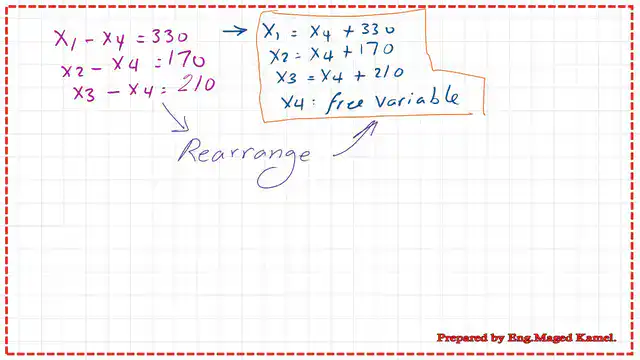 X1 - X4 = 330
X2 - X4 = 170
X3 - X4 = 210
→ X1 = X4 + 330
X2 = X4 + 170
X3 = X4 + 210
X4 : free variable
Rearrange
Prepared by Eng.Maged Kamel.